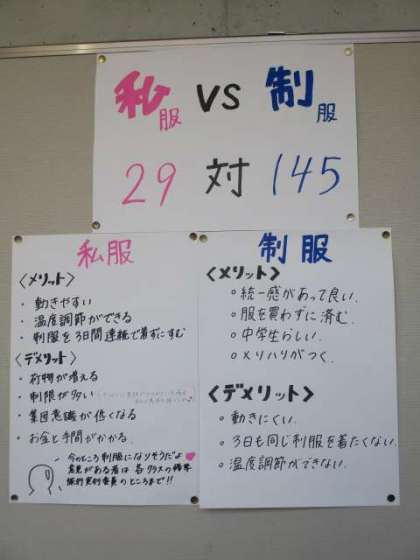 私服 VS 制服
29 対 145
私服
〈メリット〉
・動きやすい
・温度調節ができる
・制服を3日間連続で着ずにすむ
〈デメリット〉
・荷物が増える
・制限が多い
・集団意識が低くなる
・お金と手間がかかる
今のところ制服になりそうだよ
意見がある者は各クラスの
実行委員のところまで!!
制服
〈メリット〉
○統一感があって良い.
○服を買わずに済む.
○中学生らしい.
○メリハリがつく.
〈デメリット〉
・動きにくい.
・3日も同じ制服を着たくない.
・温度調節ができない.